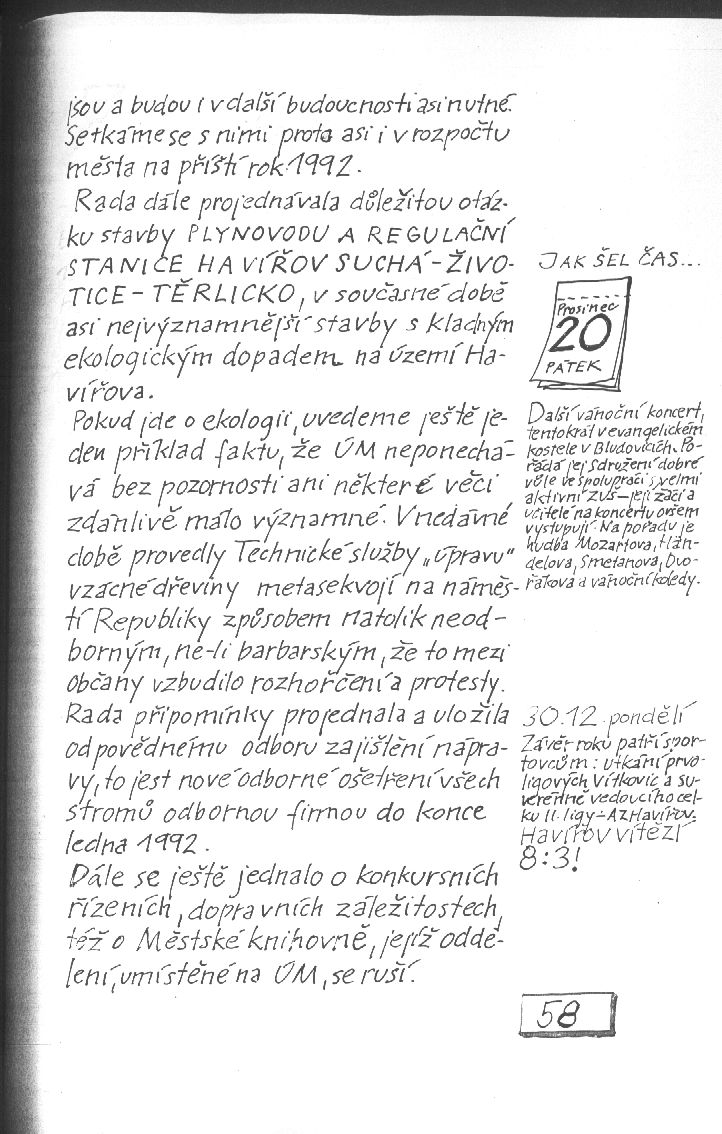 jsou a budou i v další budoucnosti asi nutné.
Setkáme se s nimi proto asi i v rozpočtu
města na příští rok 1992.
Rada dále projednávala důležitou otáz-
ku stavby PLYNOVODU A REGULAČNÍ
STANICE HAVÍŘOV SUCHÁ - ŽIVO-
TICE - TĚRLICKO, v současné době
asi nejvýznamnější stavby s kladným
ekologickým dopadem na území Ha-
vířova.
Pokud jde o ekologii, uvedeme ještě je-
den příklad faktu, že ÚM neponechá-
vá bez pozornosti ani některé věci
zdánlivě málo významné. V nedávné
době provedly Technické služby „úpravu“
vzácné dřeviny metasekvojí na náměs-
tí Republiky způsobem natolik neod-
borným, ne-li barbarským, že to mezi
občany vzbudilo rozhořčení a protesty.
Rada připomínky projednala a uložila
odpovědnému odboru zajištění nápra-
vy, to jest nové odborné ošetření všech
stromů odbornou firmou do konce
ledna 1992.
Dále se ještě jednalo o konkursních
řízeních, dopravních záležitostech,
též o Městské knihovně, jejíž oddě-
lení, umístěné na ÚM, se ruší.
JAK ŠEL ČAS...
Prosinec
20
PÁTEK
Další vánoční koncert,
tentokrát v evangelickém
kostele v Bludovicích. Po-
řádá jej Sdružení dobré
vůle ve spolupráci s velmi
aktivní ZUŠ - její žáci a
učitelé na koncertu ovšem
vystupují. Na pořadu je
hudba Mozartova, Hän-
delova, Smetanova, Dvo-
řákova a vánoční koledy.
30.12. pondělí
Závěr roku patří spor-
tovcům: utkání prvo-
ligových Vítkovic a su-
verénně vedoucího cel-
ku II. ligy - AZ Havířov.
Havířov vítězí
8:3!
58